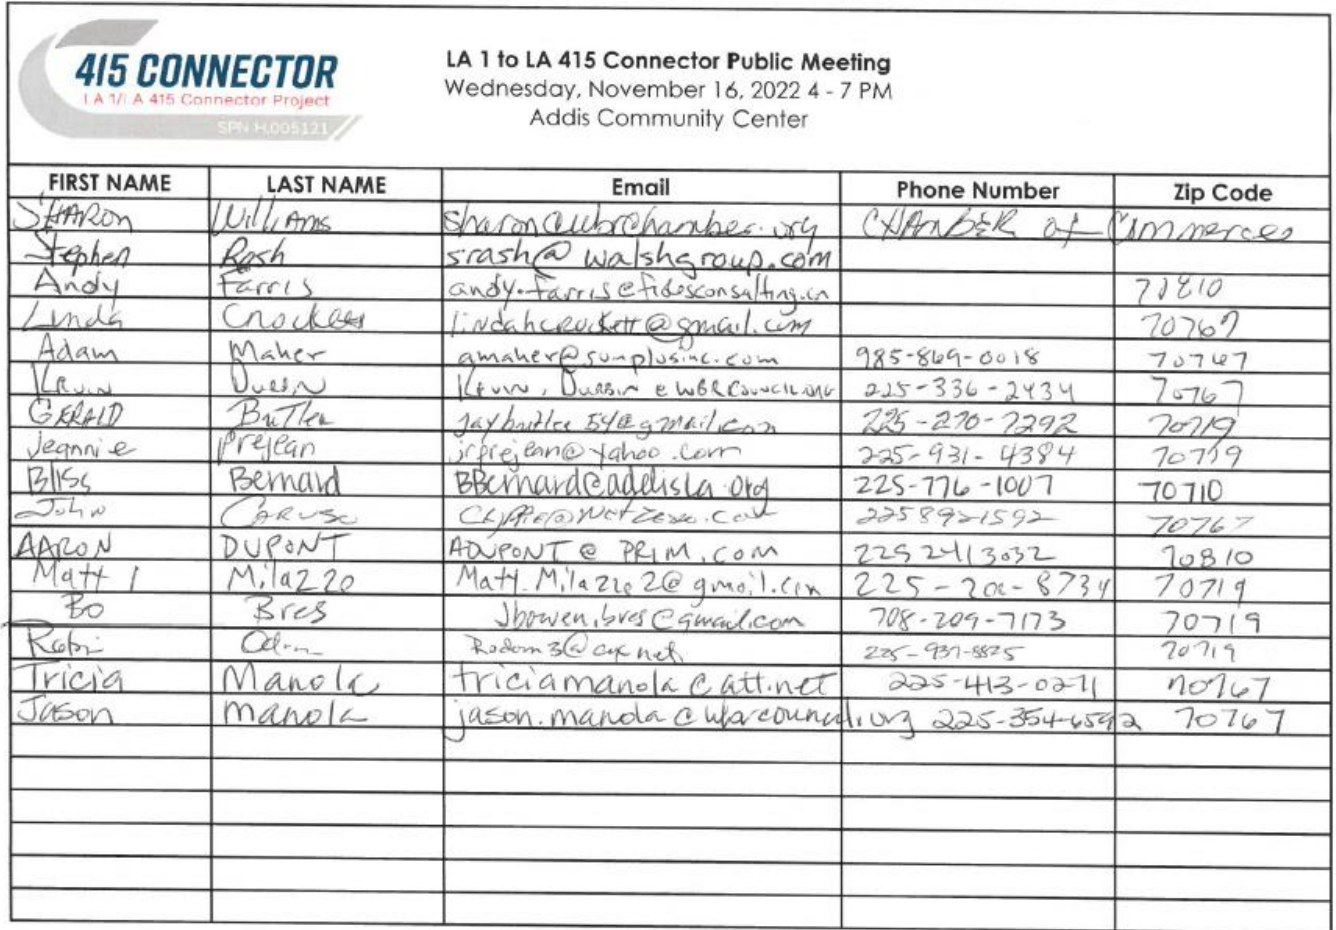 415 CONNECTOR
LA 1/LA 415 Connector Project
SPN H.005121
LA 1 to LA 415 Connector Public Meeting
Wednesday, November 16, 2022 4 - 7 PM
Addis Community Center
FIRST NAME LAST NAME Email Phone Number Zip Code
SHARON Williams sharon@wbrchamber.org CHAMBER of Commerces
Stephen Rash srash@walshgroup.com
Andy Farris andy.farris@fidesconsulting.cn 70810
Linda Crockett lindahcrockett@gmail.com 70767
Adam Maher amaher@sunplusinc.com 985-869-0018 70767
Kevin Durbin Kevin.Durbin@WBRCouncil.org 225-336-2434 70767
GERALD Butler jaybutler54@gmail.com 225-270-7292 70719
Jeannie Prejean jrprejean@yahoo.com 225-931-4384 70719
Bliss Bernard BBernard@addisla.org 225-776-1007 70710
John CARUSO 2258921592 70767
AARON DUPONT ADUPONT@PRIM.COM 225 2413032 70810
Matt Milazzo Matt.Milazzo2@gmail.com 70719
Bo Bres Jbowen.bres@gmail.com 708-209-7173 70719
Odom Rodom3@cox.net 225-937-8825 70719
Tricia Manola triciamanola@att.net 225-413-0271 70767
Jason Manola jason.manola@wbrcouncil.org 225-354-6592 70767